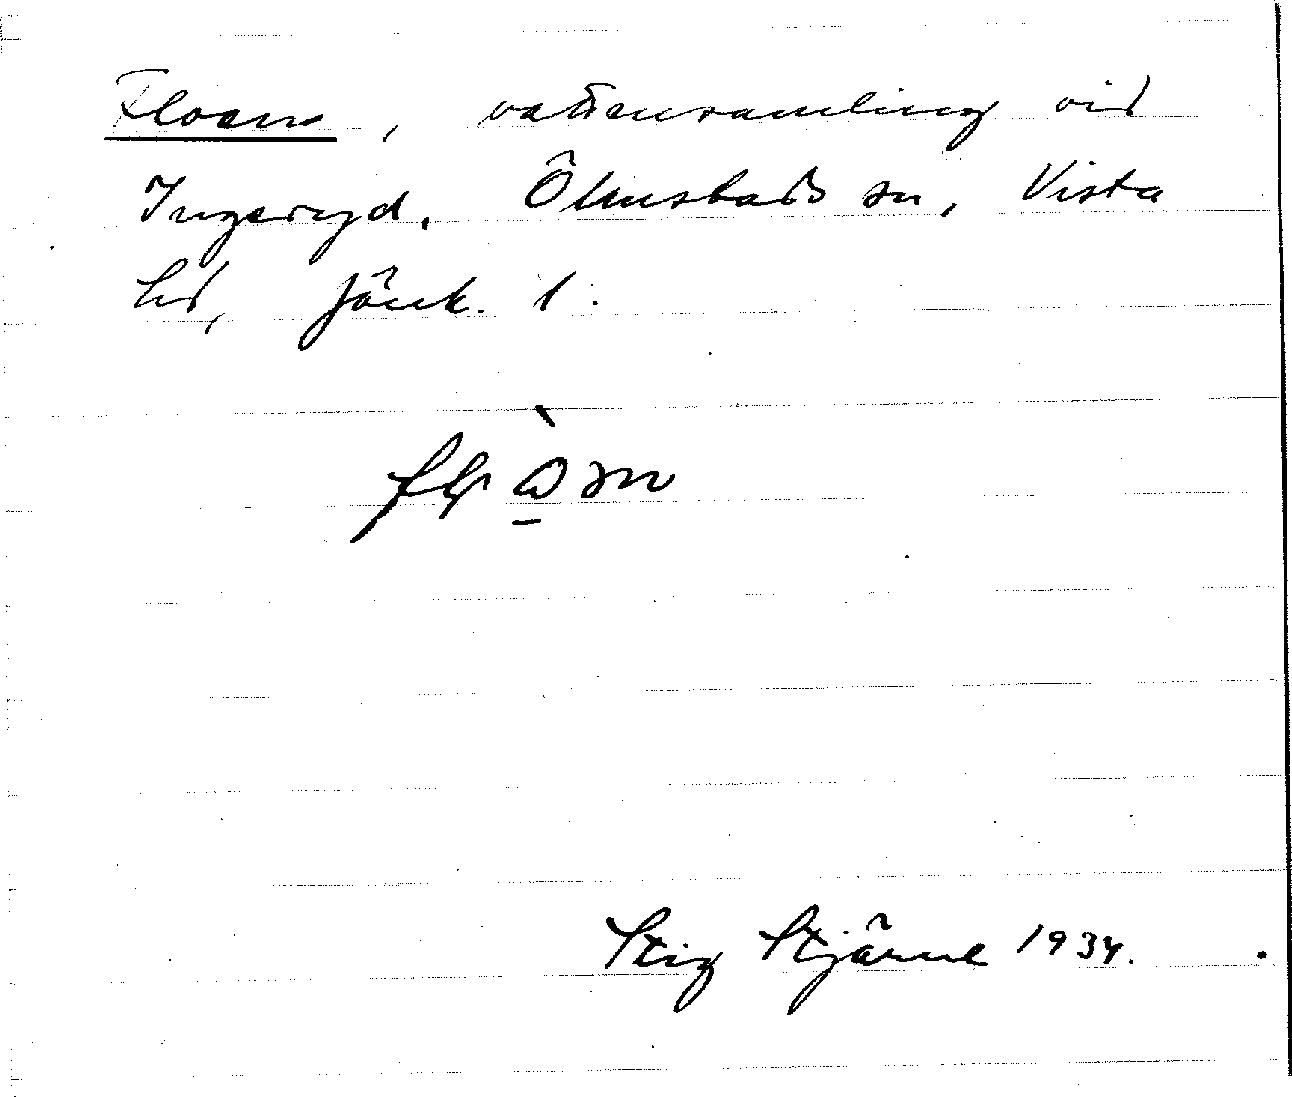 Floen, vattensamling vid
Ingeryd, Ölmstads sn, Vista
hd, Jönk. l.
Stig Stjärne 1934.